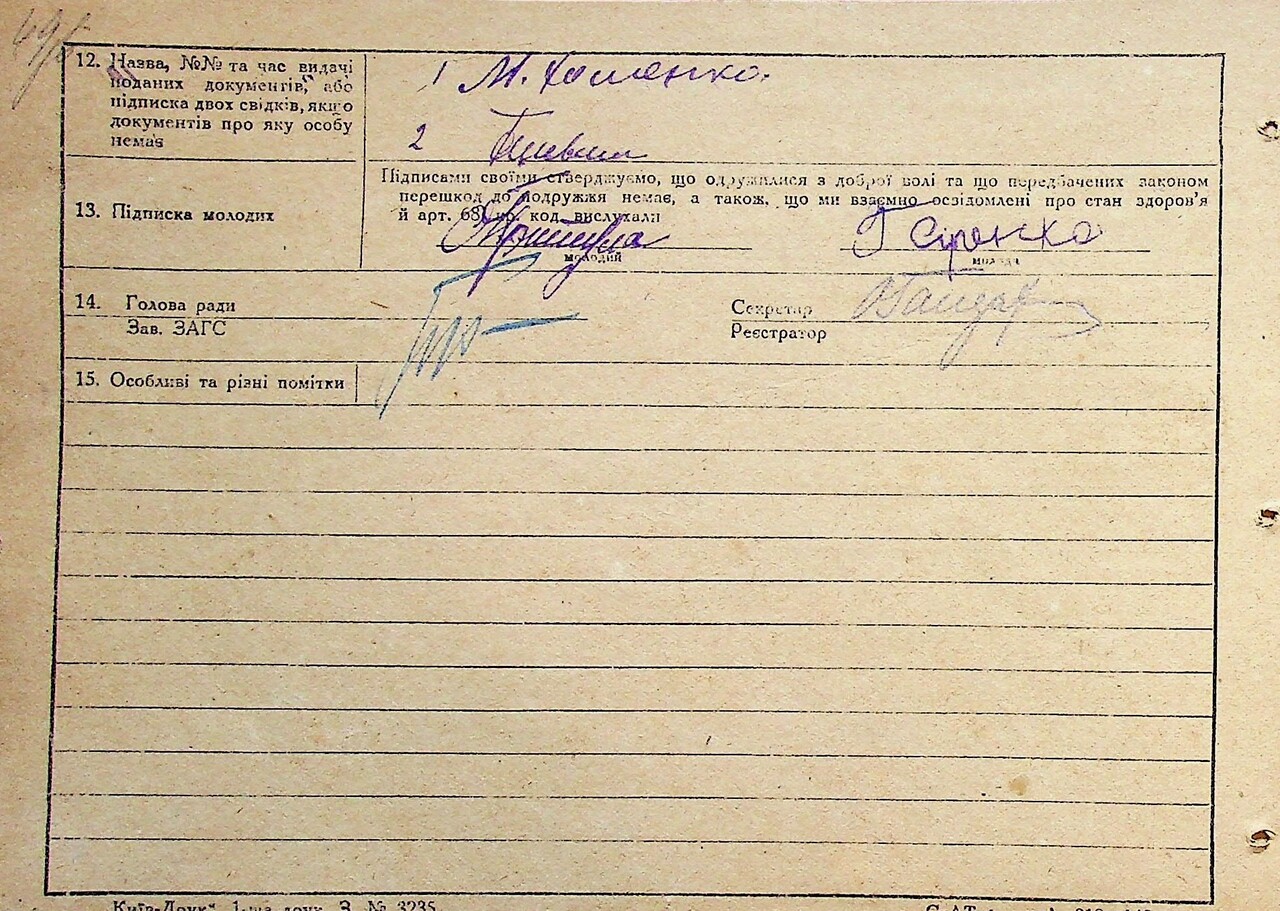 12. Назва, №№ та час видачі
поданих документів, або
підписка двох свідків, якщо
документів про яку особу
немає
1 М. Хоменко
2
Підписами своїми стверджуємо, що одружилися з доброї волі та що передбачених законом
перешкод до подружжя немає, а також, що ми взаємно освідомлені про стан здоров'я
й арт. 68 кр. код. вислухали
13. Підписка молодих
Г Сіренко
молодий
молода
14. Голова ради
Секретар
Зав. ЗАГС
Реєстратор
15. Особливі та різні помітки
Київ-Друк", 1-ша друк. З. № 3235